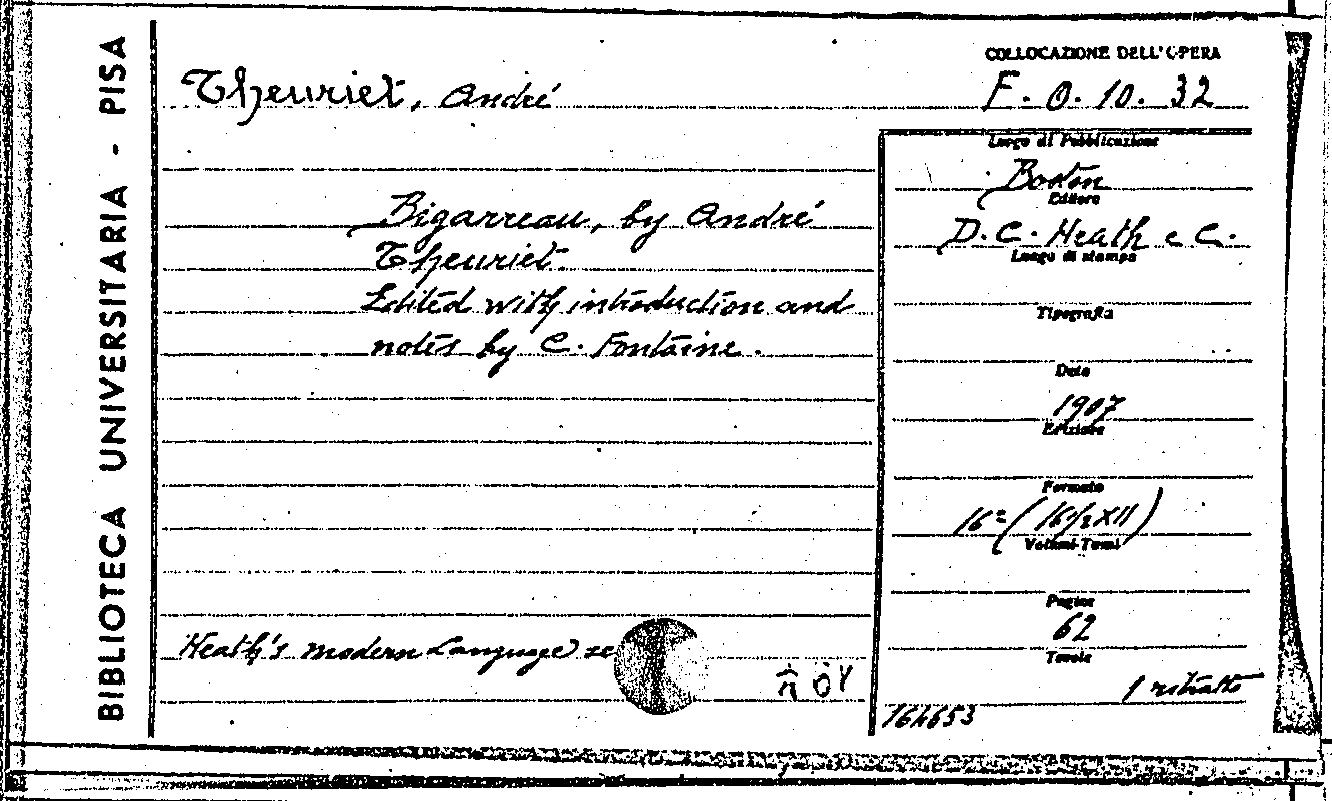 BIBLIOTECA UNIVERSITARIA - PISA
COLLOCAZIONE DELL'OPERA
Theuriet, André
F. O. 10. 32
Bigarreau, by André
Theuriet.
Edited with introduction and
notes by C. Fontaine.
Heath's modern Language se
Luogo di Pubblicazione
Boston
Editore
D. C. Heath e C.
Luogo di stampa
Tipografia
Data
1907
Edizione
Formato
16º (16½X11)
Volumi-Tomi
Pagine
62
Tavole
1 ritratto
164653